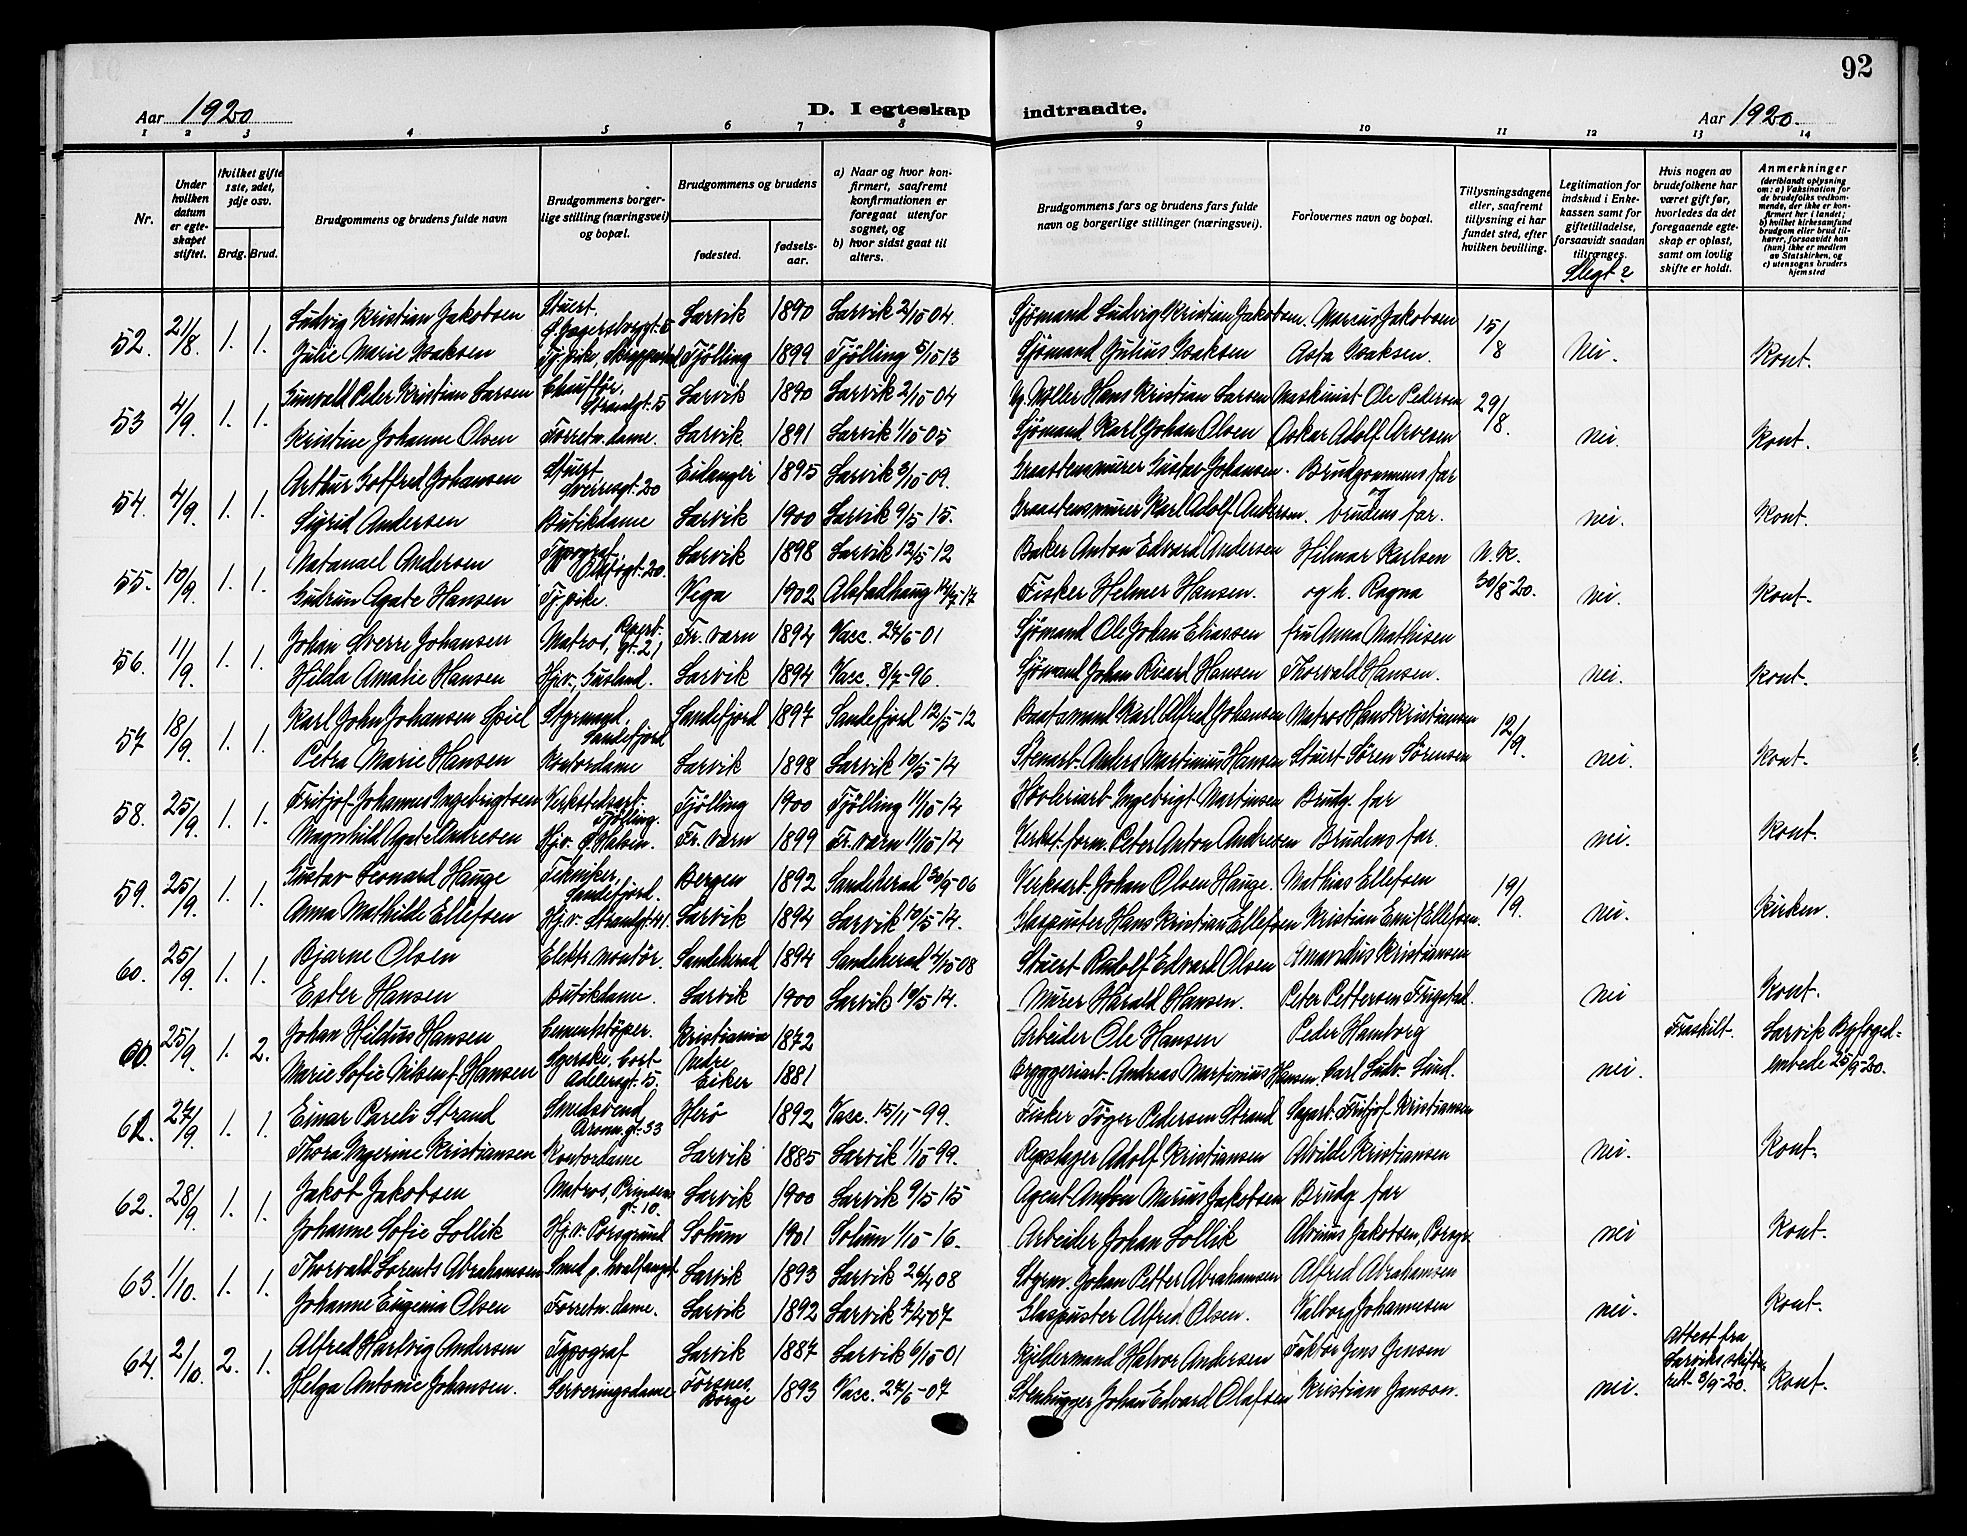 92
Aar 1920
D. I egteskap indtraadte.
Aar 1920.
1 2 3 4 5 6 7 8 9 10 11 12 13 14
Nr.
Under hvilken datum er egteskapet stiftet.
Hvilket gifte 1ste, 2det, 3dje osv.
Brdg. Brud.
Brudgommens og brudens fulde navn
Brudgommens borgerlige stilling (næringsvei) og bopæl.
Brudgommens og brudens
fødested.
fødselsaar.
a) Naar og hvor konfirmert, saafremt konfirmationen er foregaat utenfor sognet, og
b) hvor sidst gaat til alters.
Brudgommens fars og brudens fars fulde navn og borgerlige stillinger (næringsvei).
Forlovernes navn og bopæl.
Tillysningsdagene eller, saafremt tillysning ei har fundet sted, efter hvilken bevilling.
Legitimation for indskud i Enkekassen samt for giftetilladelse, forsaavidt saadan tiltrænges.
Slegt?
Hvis nogen av brudefolkene har været gift før, hvorledes da det foregaaende egteskap er opløst, samt om lovlig skifte er holdt.
Anmerkninger (deriblandt oplysning om: a) Vaksination for de brudefolks vedkommende, der ikke er konfirmert her i landet; b) hvilket kirkesamfund brudgom eller brud tilhører, forsaavidt han (hun) ikke er medlem av Statskirken, og c) utensogns bruders hjemsted
52. 21/8. 1. 1. Ludvig Kristian Jakobsen Stuert Larvik 1890 Larvik 2/10 04. Sjømand Ludvig Kristian Jakobsen. Marcus Jakobsen 15/8
Julie Marie Isaksen Tj.pike Tjølling 1899 Tjølling 5/10 13 Sjømand Julius Isaksen Asta Isaksen. Nei. Kont.
53 4/9. 1. 1. Gunvald Peder Kristian Larsen Chauffør, Strandgt. 5 Larvik 1890 Larvik 2/10-04 Møller Hans Kristian Larsen Maskinist Ole Pedersen 29/8.
Kristine Johanne Olsen Forretn. dame. Larvik 1891 Larvik 1/10-05 Sjømand Karl Johan Olsen Oskar Adolf Arvesen nei. Kont.
54. 4/9. 1. 1. Arthur Gotfred Johansen Stuert Sverresgt. 20 Eidanger 1895 Larvik 3/10-09. Graastensmurer Gustav Johansen. Brudgommens far og
Sigrid Andersen Butikdame Larvik 1900 Larvik 9/5 15. Graastensmurer Karl Adolf Andersen. brudens far. nei. Kont.
55. 10/9. 1. 1. Natanael Andersen Typograf Larvik 1898 Larvik 12/5-12 Baker Anton Edvard Andersen Hilmar Karlsen N.K.
Gudrun Agate Hansen Tj.pike. Vega 1902 Alstadhaug 14/7-17 Fisker Helmer Hansen. og h. Ragna 30/8-20. nei. Kont.
56. 11/9. 1. 1. Johan Sverre Johansen Matros, Fr. værn 1894 Vacc. 24/6-01 Sjømand Ole Johan Eliassen fru Anna Mathisen
Hilda Amalie Hansen Hj.v., Gusland. Larvik 1894 Vacc. 8/7-96. Sjømand Johan Rikard Hansen Thorvald Hansen. nei. Kont.
57 18/9. 1. 1. Karl John Johansen Spiel Styrmand, Sandefjord Sandefjord 1897 Sandefjord 12/5-12 Baatsmand Karl Alfred Johansen Matros Hans Kristiansen 12/9.
Petra Marie Hansen Kontordame Larvik 1898 Larvik 10/5-14 Stenart. Anders Martinius Hansen Stuert Søren Sørensen nei. Kont.
58. 25/9. 1. 1. Fritjof Johannes Ingebrigtsen Verkstedsarb. Tjølling. Tjølling 1900 Tjølling 11/10-14 Høvleriarb. Ingebrigt Martinsen Brudg. far
Magnhild Agate Andresen Hj.v. Ø. Halsen. Fr. værn 1899 Fr. værn 11/10-14 Verkst. form. Peter Anton Andresen Brudens far. nei. Kont.
59. 25/9. 1. 1. Gustav Leonard Hauge Tekniker, Sandefjord. Bergen 1892 Sandeherad 30/9-06 Verksarb. Johan Olsen Hauge. Mathias Ellefsen 19/9.
Anna Mathilde Ellefsen Hj.v. Strandgt. 41. Larvik 1894 Larvik 10/5-14. Glaspuster Hans Kristian Ellefsen Kristian Emil Ellefsen. nei. Kirken.
60. 25/9. 1. 1. Bjarne Olsen Elektr. Montør. Sandeherad 1894 Sandeherad 4/10-08 Stuert Rudolf Edvard Olsen Amandus Kristiansen
Ester Hansen Butikdame. Larvik 1900 Larvik 10/5 14. Murer Harald Hansen. Peter Pettersen nei Kont.
25/9. 1. 2. Johan Hildus Hansen Cementstøper. Kristiania 1872 Arbeider Ole Hansen Peder Hamborg Fraskilt. Larvik Byfoged-
Marie Sofie Nilsen f. Hansen Adelersgt. 5. Nedre Eiker 1881 Bryggeriarb. Andreas Martinius Hansen Carl Ludv. Lund. nei. embede 25/9-20.
61. 27/9. 1. 1. Einar Pareli Strand Smedsvend Herø 1892 Vacc. 15/11-99. Fisker Tøger Pedersen Strand Sagarb. Fritjof Kristiansen
Thora Ingerine Kristiansen Kontordame Larvik 1885 Larvik 1/10-99. Repslager Adolf Kristiansen Alvilde Kristiansen nei. Kont.
62. 28/9. 1. 1. Jakob Jakobsen Matros, Prinsensgt. 10. Larvik 1900 Larvik 9/5 15 Agent Anton Marius Jakobsen Brudg. far
Johanne Sofie Lollik Hj.v. Porsgrund Solum 1901 Solum 1/10-16. Arbeider Johan Lollik Alvius Jakobsen, Porsgr. nei Kont.
63. 1/10. 1. 1. Thorvald Lorents Abrahamsen Smed p. hvalfangst Larvik 1893 Larvik 26/4 08 Styrm. Johan Petter Abrahamsen Alfred Abrahamsen
Johanne Eugenia Olsen Forretn. dame. Larvik 1892 Larvik 7/4 07 Glaspuster Alfred Olsen. Valborg Johannesen nei. Kont.
64. 2/10. 2. 1. Alfred Hartvig Andersen Typograf Larvik 1887 Larvik 6/10-01 Kjeldermand Halvor Andersen Faktor Jens Jensen Attest fra Larviks skifterett 3/9-20.
Helga Antonie Johansen. Serveringsdame Torsnes, Borge 1893 Vacc. 24/6-07 Stenhugger Johan Edvard Olafsen Kristian Janson. nei. Kont.